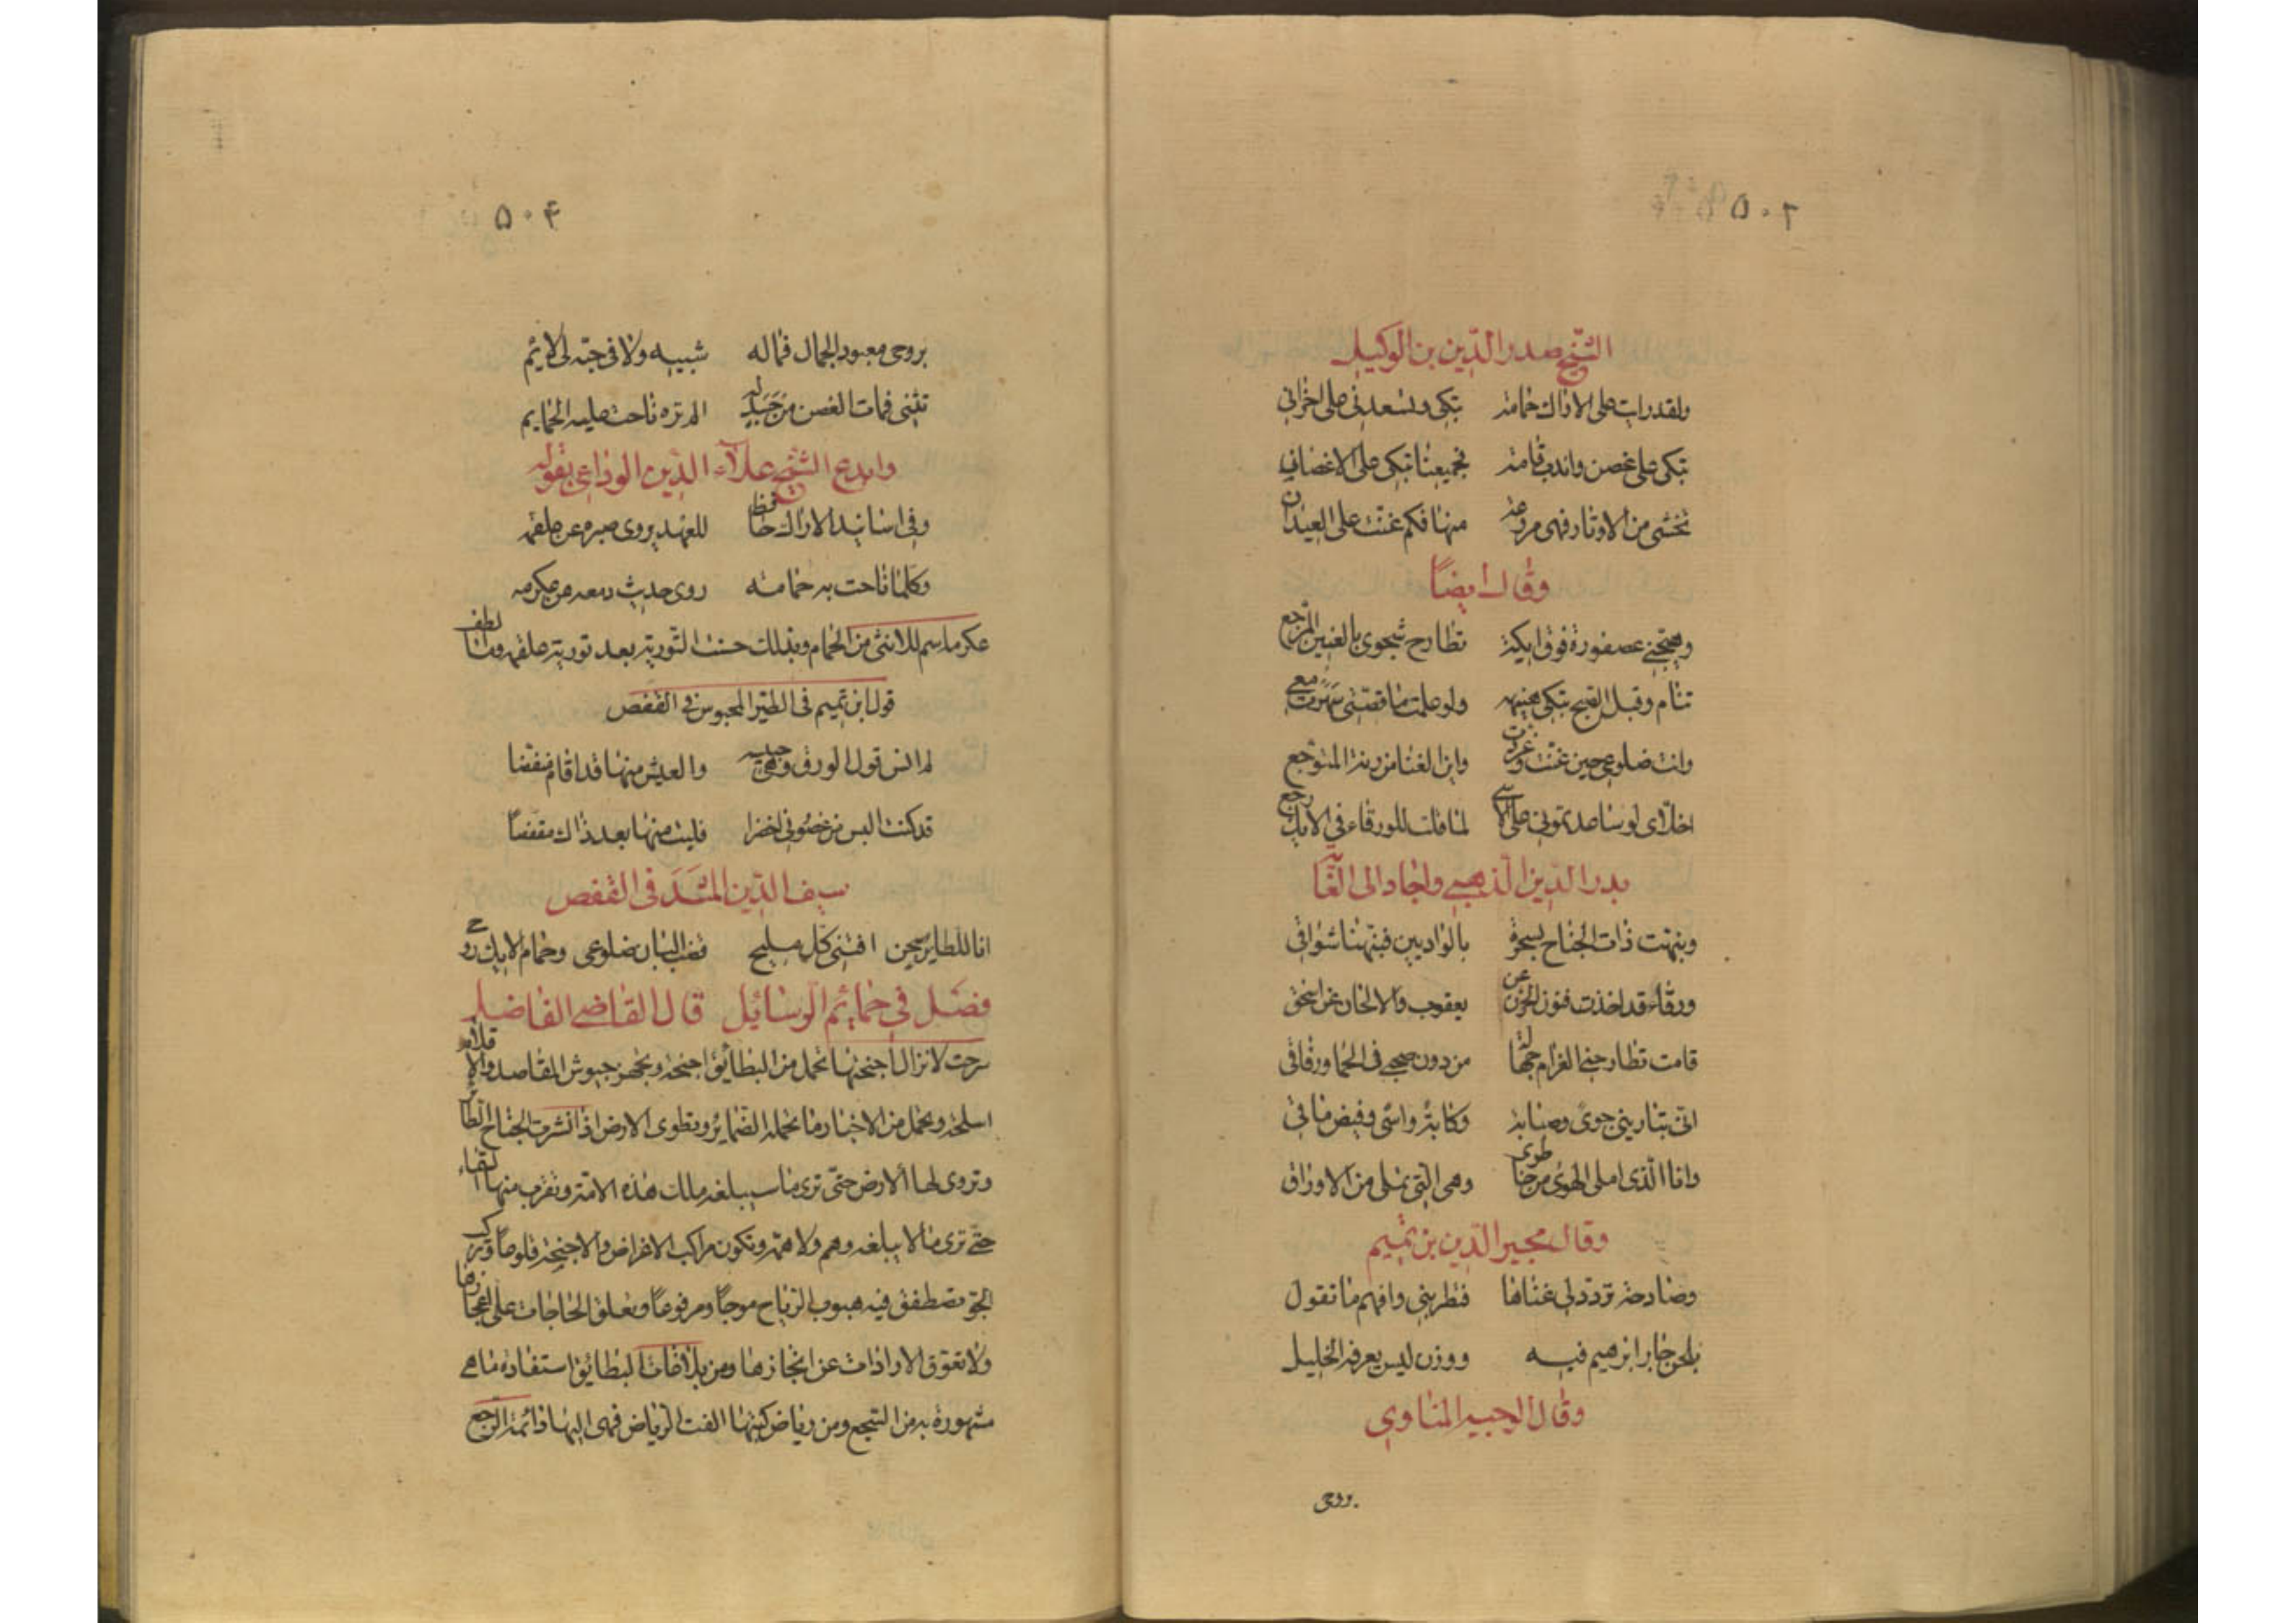 ٥٠٢
الشيخ صدر الدين بن الوكيل
ولقد رايت على الاراك حمامة تبكي وتسعدني على احزاني
تبكي على غصن واندب قامة فجميعنا تبكي على الاغصان
تخشى من الاوتار فهي مروعة منها فكم غنت على العيدان
وقال ايضاً
وهيجني عصفورة فوق ايكة تطارح شجوي بالغنين المرجع
تنام وقبل الصبح تبكي بعينها ولو علمت ما قصتي سهرت معي
وانت ضلوعي حين غنت وغردت واين الغنا من رنة المتوجع
اخلاي لو ساعدتموني على الاسى لما قلت للورقاء في الايك رجع
بدر الدين الذهبي واجاد الى الغاية
وبنهت ذات الجناح بسحرة بالواديين فنبهت اشواقي
ورقاء قد اخذت فنون الحزن عن يعقوب والالحان عن اسحق
قامت تطارحني الغرام جهالة من دون صحبي في الحما ورفاقي
انى تباريني جوى وصبابة وكابة واسى وفيض ماقي
وانا الذي املى الهوى من خاطري وهي التي تملي من الاوراق
وقال مجير الدين بن تميم
وصادحة تردد لي غناها فتطربني وافهم ما تقول
بلحن حار ابرهيم فيه ووزن ليس يعرفه الخليل
وقال الوجيه المناوي
بروحي
٥٠۴
بروحي معبود الجمال فماله شبيه ولا في حبه لي لائم
تثنى فمات الغصن من حسد له الم تره ناحت عليه الحمايم
وابدع الشيخ علاء الدين الوداعي بقوله
وفي اسانيد الاراك حافظ للعهد يروي صبره عن علقمه
وكلما ناحت به حمامه روى حديث دمعه عن عكرمه
عكرمه اسم للانثى من الحمام وبذلك حسنت التورية بعد تورية علقمه وما الطف
قول ابن تميم في الطير المحبوس في القفص
لم انس قول الورق وهي حبيسه والعيش منها قد اقام منغصا
قد كنت البس من غصوني اخضرا فلبست منها بعد ذاك مقفصاً
سيف الدين المشد في القفص
انا للطاير سجن اقتني كل مليح قضب البان ضلوعي وحمام الايك روحي
فصل في حمائم الرسائل قال القاضي الفاضل
سرحت لا تزال اجنحتها تحمل من البطائق اجنحة وتجهز جيوش المقاصد والاقلام
اسلحة وتحمل من الاخبار ما تحمله الضمائر وتطوي الارض اذا نشرت الجناح الطائر
وتزوى لها الارض حتى ترى ما سيبلغه ملك هذه الامة وتقرب منها السماء
حتى ترى مالا يبلغه وهم ولا همة وتكون مراكب الاغراض والاجنحة قلوعاً وتركب
الجو تصطفق فيه هبوب الرياح موجاً ومرفوعاً وتعلق الحاجات على اعجازها
ولا تعوق الارادات عن انجازها ومن بلاغات البطائق استفادة ما هي
مشهورة به من السجع ومن رياض كتبها الفت الرياض فهي اليها دائمة الرجع